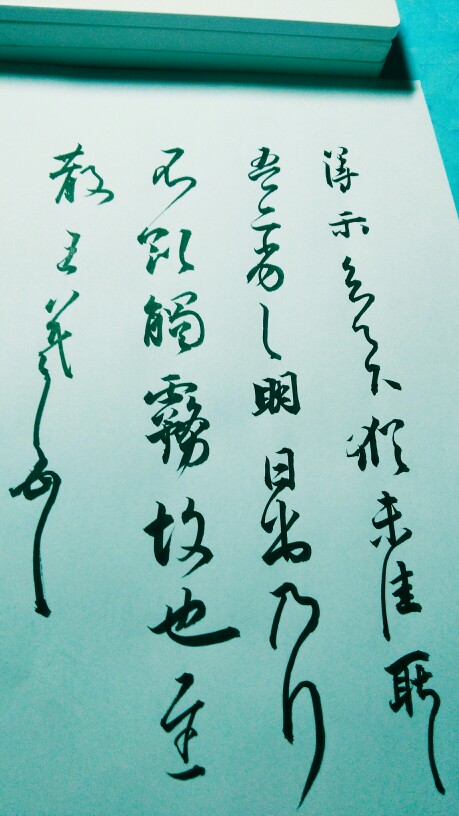 得示知足下猶未佳耿
吾亦劣之明日出乃行
不欲觸霧故也王
散王羲之頓首